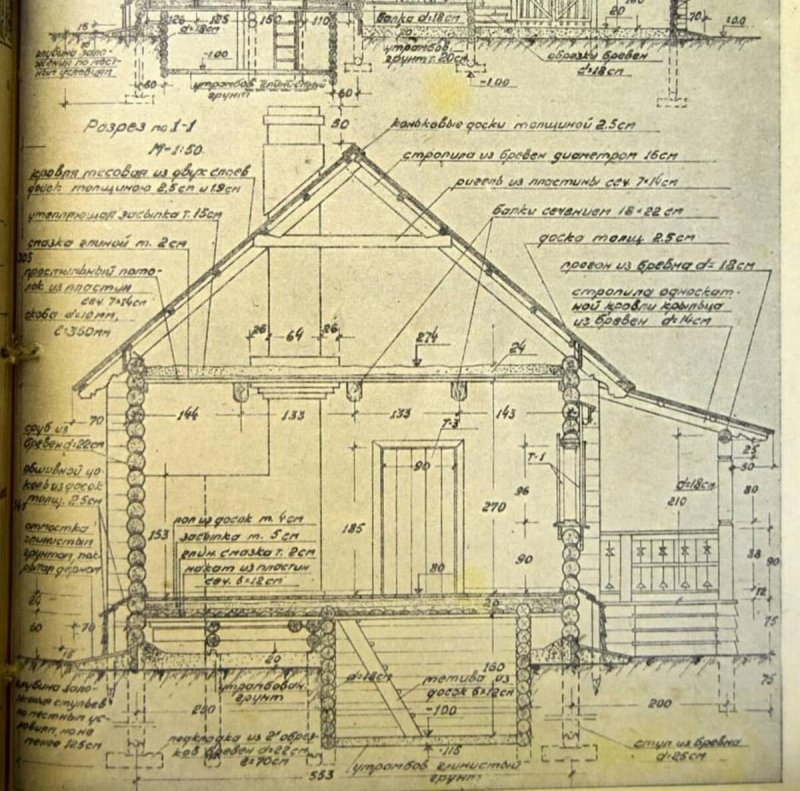 15
126 125 150 110
d=18см
балка d=18см
20
70
100
-100
утрамбов.
грунт т. 20см
-100
обрезки бревен
d=18см
глубина зало-
жения по мест-
ным условиям
60
утрамбов. глинистый
грунт
60
Разрез по 1-1
М-1:50.
50
коньковые доски толщиной 2.5см
стропила из бревен диаметром 16см
ригель из пластины сеч. 7×14см
балки сечением 18×22см
доска толщ. 2.5см
прогон из бревна d=18см
стропила односкат-
ной кровли крыльца
из бревен d=14см
кровля тесовая из двух слоев
досок толщиною 2.5см и 1.9см
утепляющая засыпка т. 15см
смазка глиной т. 2см
305
простильный пото-
лок из пластин
сеч. 7×14см
скоба d=10мм,
ℓ=350мм
26 64 26
274
24
70
144 133 133 143
Т-3
90
Т-1
96
270
185
90
80
153
25
50
d=18см
210
80
38
90
12
75
сруб из
бревен d=22см
обшивной цо-
коль из досок
толщ. 2.5см
145
отмостка
глинистым
грунтом, пок-
рытая дерном
пол из досок т. 4см
засыпка т. 5см
глин. смазка т. 2см
накат из пластин
сеч. 6×12см
20
60
70
15
20
утрамбован.
грунт
d=18см
160
тетива из
досок 6×12см
-100
-115
75
глубина зало-
жения стульев
по местным ус-
ловиям, но не
менее 125см
200
подкладка из 2х обрез-
ков бревен d=22см
ℓ=70см
553
утрамбов. глинистый
грунт
стул из бревна
d=25см